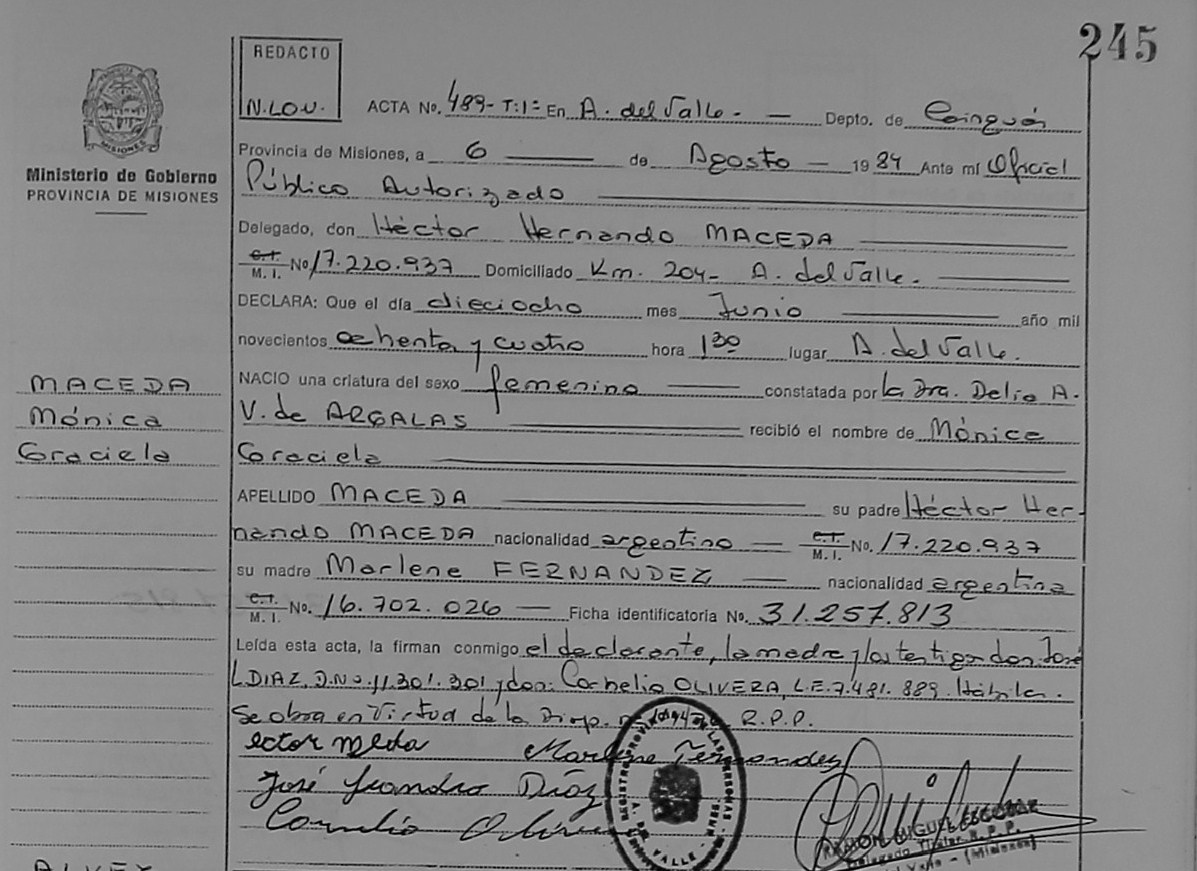 245
REDACTO
N.LO.U.
MISIONES
Ministerio de Gobierno
PROVINCIA DE MISIONES
ACTA No. 489- T:1= En A. del Valle. — Depto. de Cainguás
Provincia de Misiones, a 6 — de Agosto — 1984 Ante mí Oficial
Público Autorizado
Delegado, don Héctor Hernando MACEDA
C.I. M. I. No 17.220.937 Domiciliado Km. 204- A. del Valle.
DECLARA: Que el día dieciocho mes Junio año mil
novecientos ochenta y cuatro hora 1 30 lugar A. del Valle.
NACIO una criatura del sexo femenino constatada por la Dra. Delia A.
V. de ARGALAS recibió el nombre de Mónica
Graciela
APELLIDO MACEDA su padre Héctor Her-
nando MACEDA nacionalidad argentino — C.I. M. I. No. 17.220.937
su madre Marlene FERNANDEZ — nacionalidad argentina
C.I. M. I. No. 16.702.026 — Ficha identificatoria No. 31.257.813
Leída esta acta, la firman conmigo el declarante, la madre y los testigos don José
L. DIAZ, D.N.I. 11.301.301 y don: Cornelio OLIVERA, L.E. 7.481.889. Hábiles.
Se obra en Virtud de la Disp. R.P.P.
MACEDA
Mónica
Graciela
ector meda Marlene Fernandez
José Leandro Díaz
Cornelio Olivera
RAMON MIGUEL ESCOBAR
Delegado Titular R.P.P.
(Misiones)